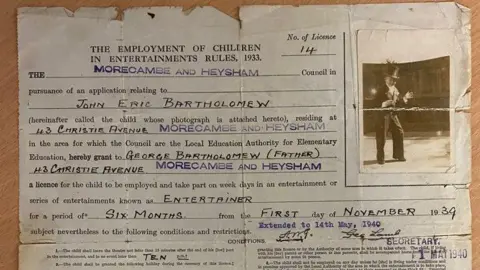 THE EMPLOYMENT OF CHILDREN
IN ENTERTAINMENTS RULES, 1933.
No. of Licence
14
THE MORECAMBE AND HEYSHAM Council in
pursuance of an application relating to
JOHN ERIC BARTHOLOMEW
(hereinafter called the child whose photograph is attached hereto), residing at
43 CHRISTIE AVENUE MORECAMBE AND HEYSHAM
in the area for which the Council are the Local Education Authority for Elementary
Education, hereby grant to GEORGE BARTHOLOMEW (FATHER)
43 CHRISTIE AVENUE MORECAMBE AND HEYSHAM
a licence for the child to be employed and take part on week days in an entertainment or
series of entertainments known as ENTERTAINER
for a period of SIX MONTHS. from the FIRST day of NOVEMBER 1939
Extended to 14th May, 1940
subject nevertheless to the following conditions and restrictions.
SECRETARY.
CONDITIONS
1 MAY 1940
TEN